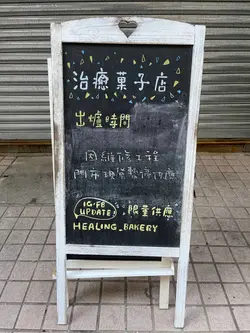 治癒菓子店
出爐時間
因維修工程
門市現貨暫停供應
IG.FB
UPDATE!
限量供應
HEALING_BAKERY